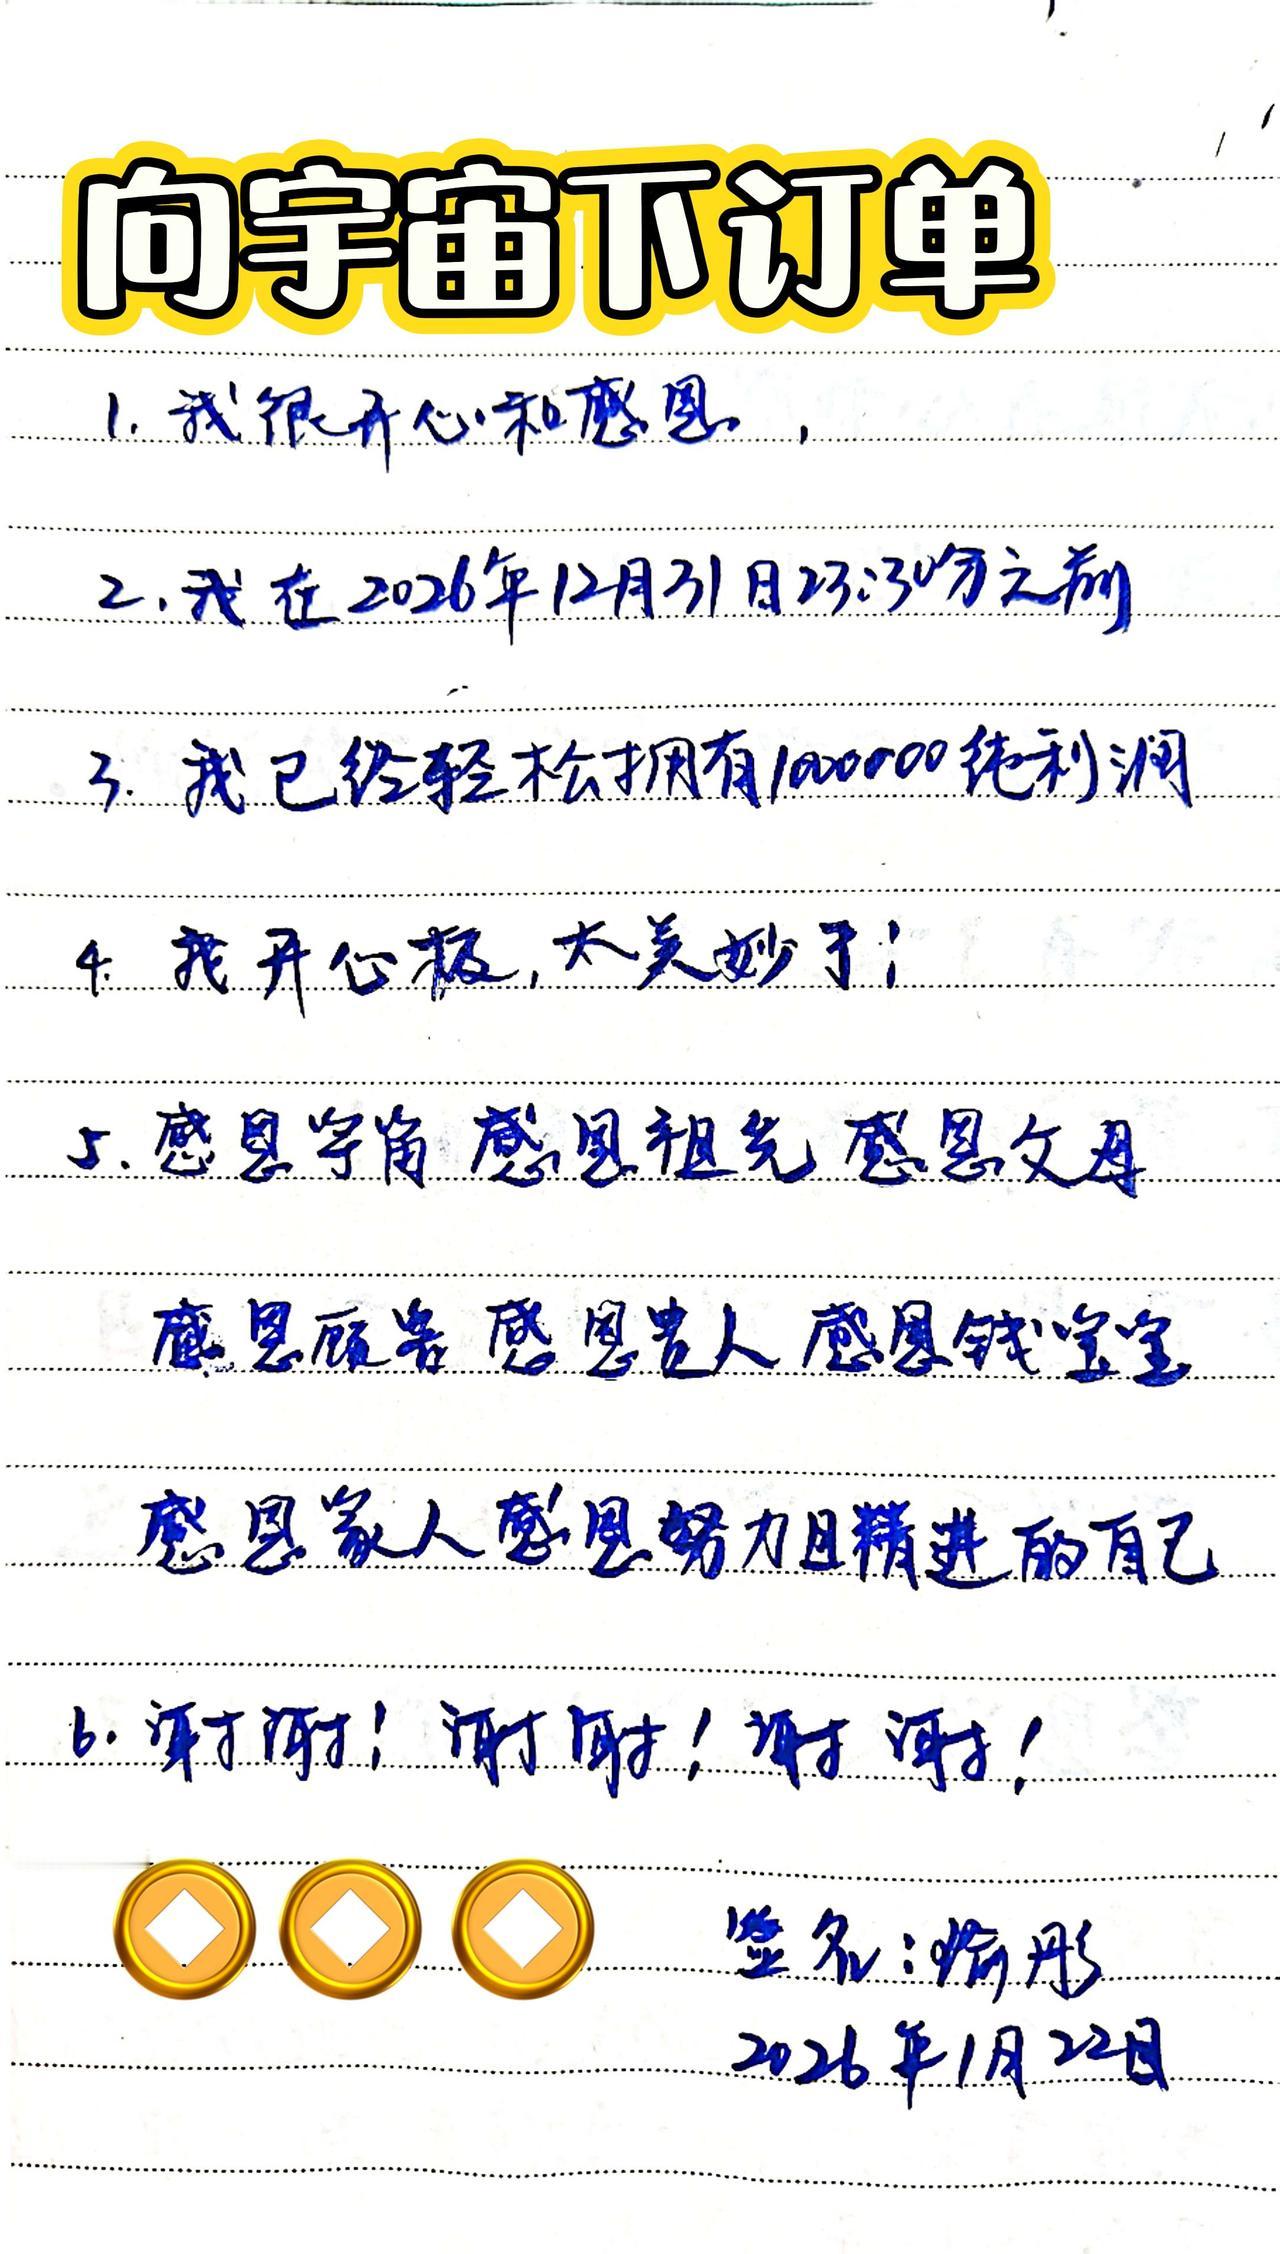 向宇宙下订单
1. 我很开心和感恩，
2. 我在2026年12月31日23:30分之前
3. 我已经轻松拥有1000000纯利润
4. 我开心极，太美妙了！
5. 感恩宇宙 感恩祖先 感恩父母
感恩顾客 感恩贵人 感恩钱宝宝
感恩家人 感恩努力且精进的自己
6. 谢谢！谢谢！谢谢！
签名：喻彤
2026年1月22日